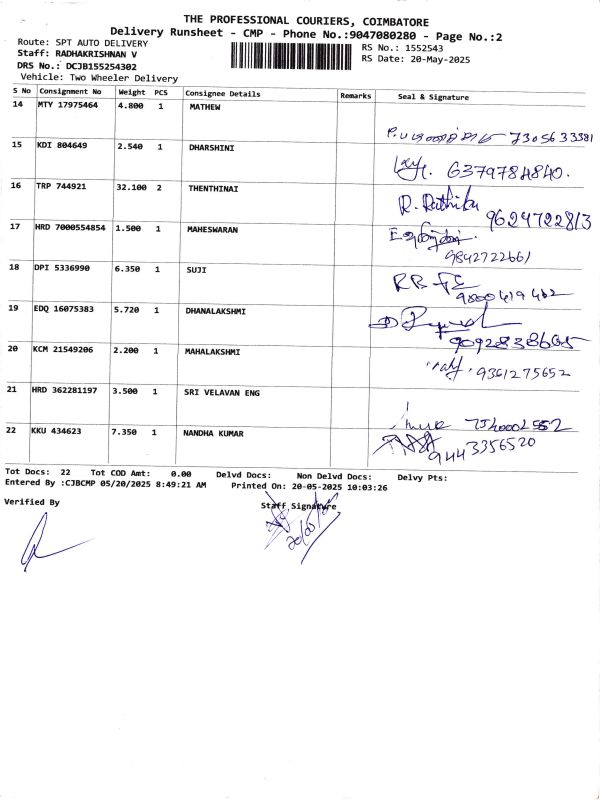 THE PROFESSIONAL COURIERS, COIMBATORE
Delivery Runsheet - CMP - Phone No.:9047080280 - Page No.:2
Route: SPT AUTO DELIVERY
RS No.: 1552543
Staff: RADHAKRISHNAN V
RS Date: 20-May-2025
DRS No.: DCJB155254302
Vehicle: Two Wheeler Delivery
S No Consignment No Weight PCS Consignee Details Remarks Seal & Signature
14 MTY 17975464 4.800 1 MATHEW
7305633381
15 KDI 804649 2.540 1 DHARSHINI
6379784840.
16 TRP 744921 32.100 2 THENTHINAI
R. Rathika 9624722813
17 HRD 7000554854 1.500 1 MAHESWARAN
9842722661
18 DPI 5336990 6.350 1 SUJI
19 EDQ 16075383 5.720 1 DHANALAKSHMI
20 KCM 21549206 2.200 1 MAHALAKSHMI
9361275652
21 HRD 362281197 3.500 1 SRI VELAVAN ENG
22 KKU 434623 7.350 1 NANDHA KUMAR
9443356520
Tot Docs: 22 Tot COD Amt: 0.00 Delvd Docs: Non Delvd Docs: Delvy Pts:
Entered By :CJBCMP 05/20/2025 8:49:21 AM Printed On: 20-05-2025 10:03:26
Verified By
Staff Signature